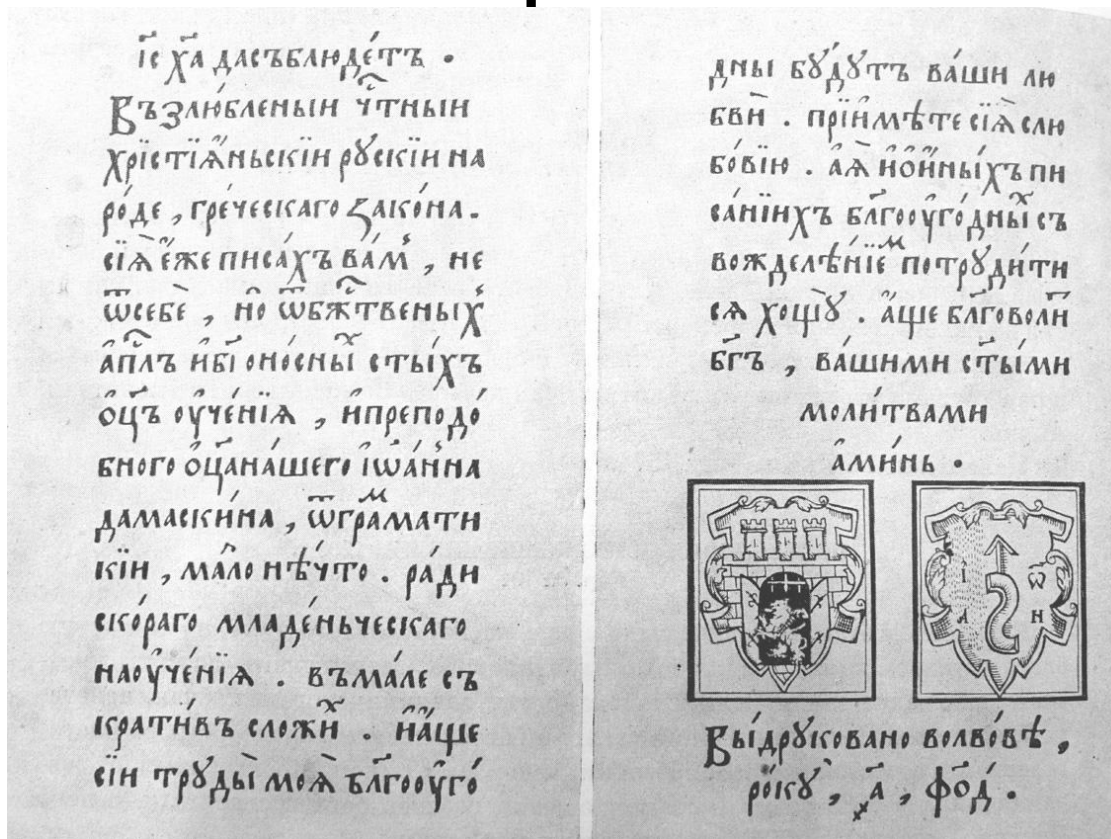 і҃с х҃а дасъблюде́тъ .
Въꙁлю́бленыи чⷭ҇тныи
хрⷭ҇тїѧ́ньскїи рꙋскїи на
ро́де , гре́ческаго ꙁако́на .
сїѧ̀ е҆́же писа́хъ ва́мъ , не
ѿсебѐ , но̀ ѿбж҃твеныⷯ
а҆пⷭ҇лъ и҆бг҃оно́сныⷯ ст҃ы́хъ
ѻ҆ц҃ъ оу҆че́нїѧ , и҆преподо́
бного о҆ц҃ана́шего і҆ѡа́нна
дамаски́на , ѿгра́маⷨти
кїи , ма́ло нѣ́что . ради
ско́раго младе́ньческаго
наоуче́нїѧ . въма́ле съ
крати́въ сложи́хъ и҆а҆́ще
сїи труды̀ моѧ̀ бл҃гооуго́
дны бꙋ́дꙋтъ ва́ши лю
бви́ . прїи҆мѣ́те сїѧ̀ слю
бо́вїю . а҆ꙗ҆̀ и҆ои҆ны́хъ пи
са́нїихъ бл҃гооуго́дныⷯ съ
вожделѣ́нїеⷨ потрꙋди́ти
сѧ хощꙋ̀ . а҆́ще бл҃говоли́т
бг҃ъ , ва́шими ст҃ы́ми
молитвами
а҆ми́нь .
І Ѡ
А Н
Вы́дрꙋковано волво́вѣ ,
ро́кꙋ , ҂а҃ , ф҃о҃д .